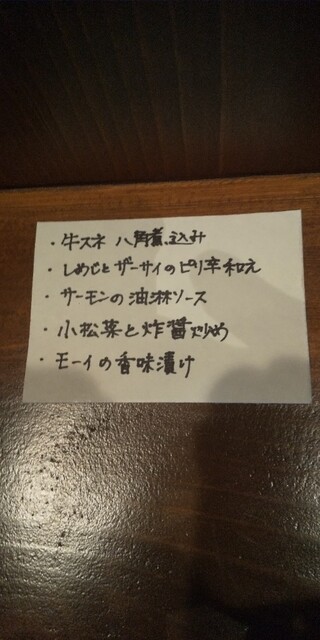 ・牛スネ 八角煮込み
・しめじとザーサイのピリ辛和え
・サーモンの油淋ソース
・小松菜と炸醤炒め
・モーイの香味漬け